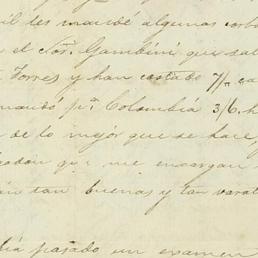 il les mandé algunas cort
el Sor. Gambini que sal
Torres y han costado 7/
mandó pa. Colombia 3/6. h
de lo mejor que se hace,
godon que me encargan
an tan buenas y tan varat
bia pasado un examen